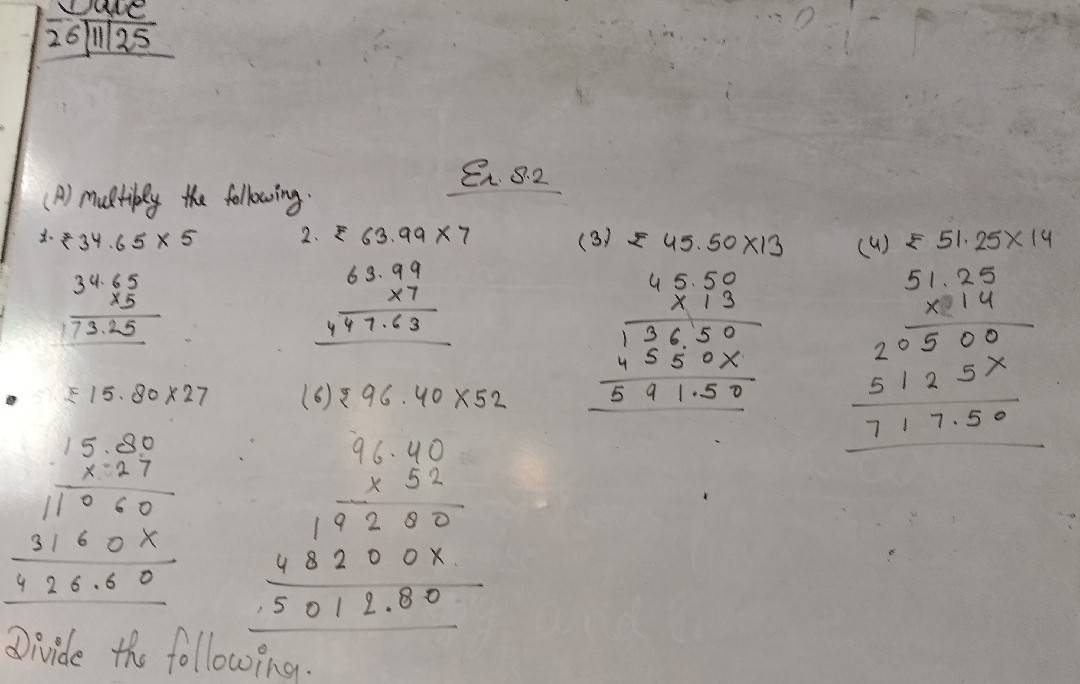 Date
26/11/25
Ex. 8.2
(A) Multiply the following.
1. ₹34.65 × 5
34.65
×5
173.25
2. ₹ 63.99 × 7
63.99
×7
447.63
(3) ₹ 45.50 × 13
45.50
× 13
136.50
4550×
591.50
(4) ₹ 51.25 × 14
51.25
× 14
20500
5125×
717.50
₹ 15.80 × 27
15.80
× 27
11060
3160×
426.60
(6) ₹ 96.40 × 52
96.40
× 52
19280
48200×
5012.80
Divide the following.